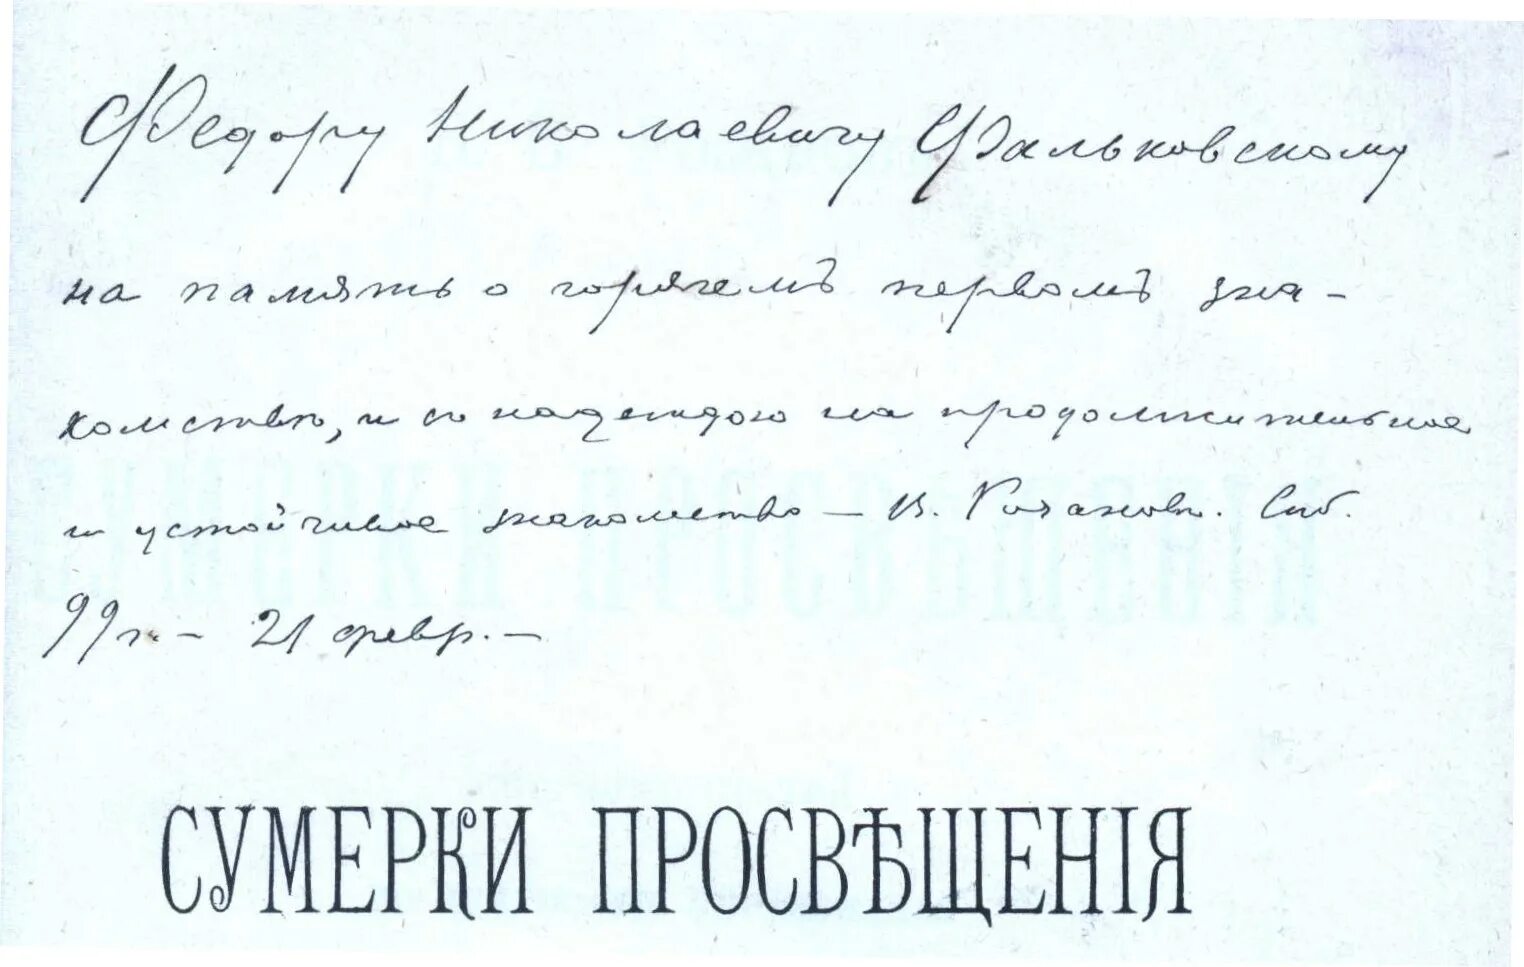 Федору Николаевичу Фальковскому
на память о горячемъ первомъ зна-
комствѣ, и съ надеждою на продолжительное
и устойчивое знакомство – В. Розановъ. Спб.
99 г. – 21 февр. –
СУМЕРКИ ПРОСВѢЩЕНІЯ